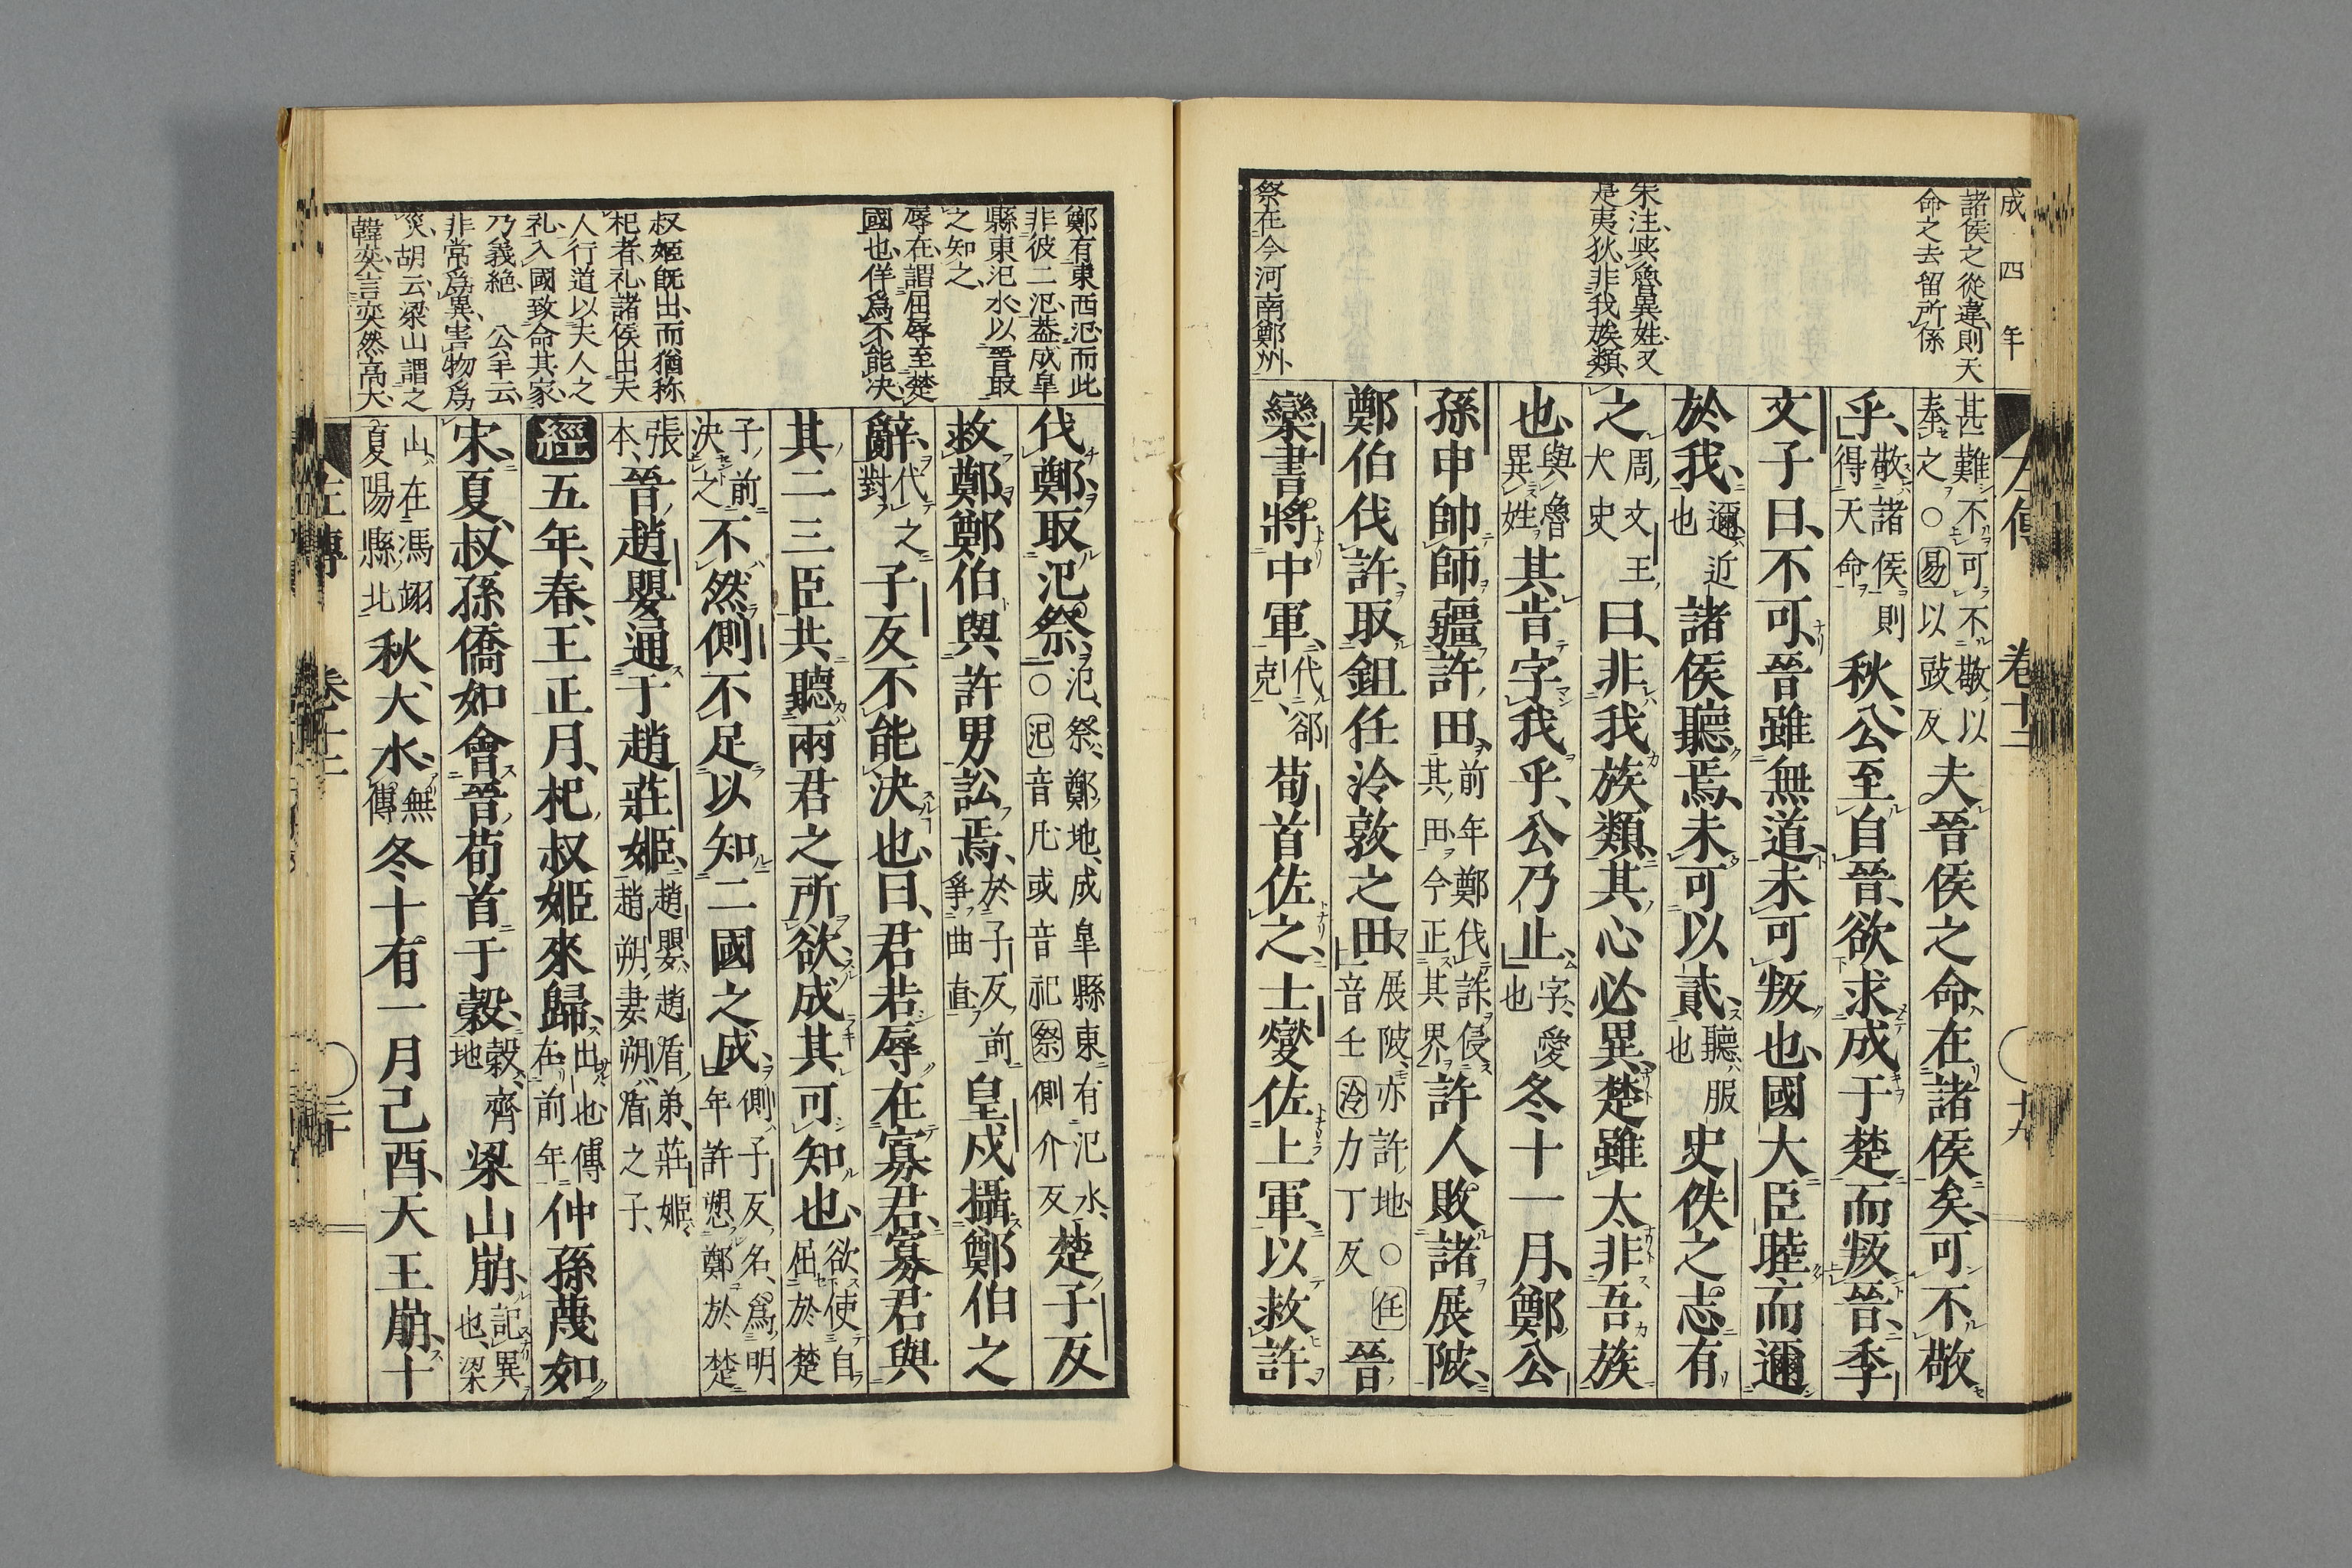 成四年
諸侯之從違則天
命之去留所係
朱注與魯異姓又
是夷狄非我族類
祭在今河南鄭州
甚難不可不敬以奉之○易以豉反夫晉侯之命在諸侯矣可不敬
乎敬諸侯則得天命秋公至自晉欲求成于楚而叛晉季
文子曰不可晉雖無道未可叛也國大臣睦而邇
於我邇近也諸侯聽焉未可以貳聽服也史佚之志有
之周文王大史曰非我族類其心必異楚雖大非吾族
也與魯異姓其肯字我乎公乃止字愛也冬十一月鄭公
孫申帥師疆許田前年鄭伐許侵其田今正其界許人敗諸展陂
鄭伯伐許取鉏任泠敦之田展陂亦許地○任音壬泠力丁反晉
欒書將中軍代郤克荀首佐之士燮佐上軍以救許
左傳 卷十二 十九
鄭有東西汜而此
非彼二汜蓋成皐
縣東汜水以晉取
之知之
辱在謂屈辱至楚
國也佯爲不能决
叔姬既出而猶称
杞者礼諸侯出夫
人行道以夫人之
礼入國致命其家
乃義絶 公羊云
非常爲異害物爲
災胡云梁山謂之
韓奕言奕然高大
伐鄭取汜祭汜祭鄭地成皐縣東有汜水○汜音凡或音祀祭側介反楚子反
救鄭鄭伯與許男訟焉於子反前爭曲直皇戍攝鄭伯之
辭代之對子反不能決也曰君若辱在寡君寡君與
其二三臣共聽兩君之所欲成其可知也欲使自屈於楚
子前決之不然側不足以知二國之成側子反名爲明年許愬鄭於楚
張本晉趙嬰通于趙莊姬趙嬰趙盾弟莊姬趙朔妻朔盾之子
經五年春王正月杞叔姬來歸出也傳在前年仲孫蔑如
宋夏叔孫僑如會晉荀首于穀穀齊地梁山崩記異也梁
山在馮翊夏陽縣北秋大水無傳冬十有一月己酉天王崩十
左傳 卷十二 二十